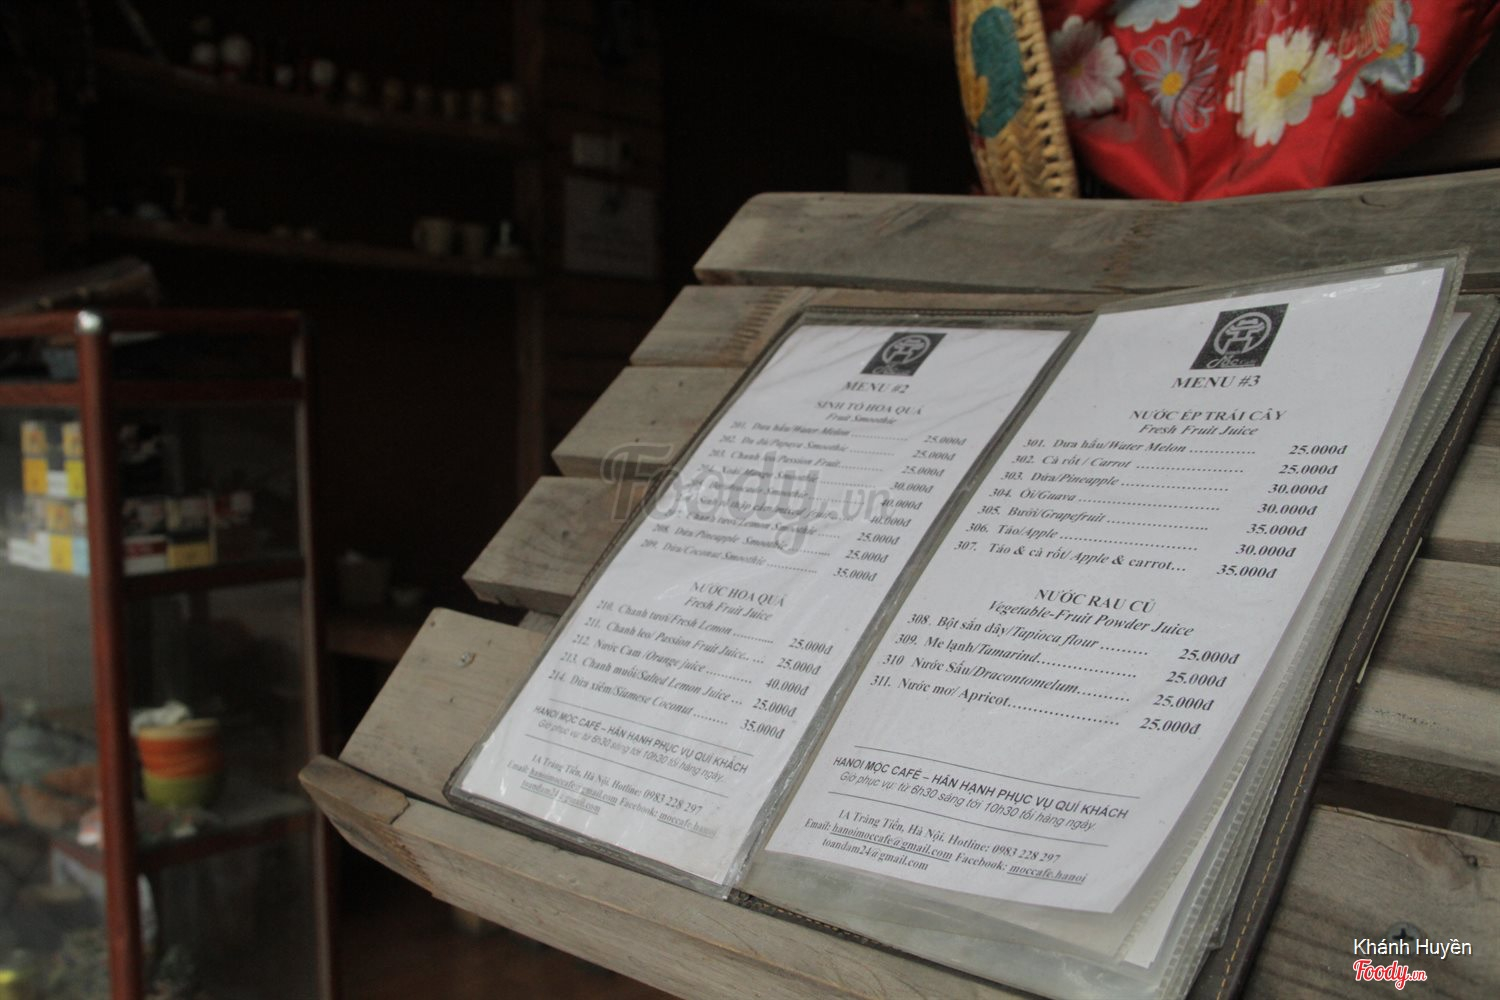 MENU #2
SINH TỐ HOA QUẢ
Fruit Smoothie
201. Dưa hấu/Water Melon .............. 25.000đ
202. Đu đủ/Papaya Smoothie ........... 25.000đ
203. Chanh leo/Passion Fruit........... 25.000đ
204. Xoài/Mango Smoothie 30.000đ
40.000đ
40.000đ
Chanh tươi/Lemon Smoothie ...... 25.000đ
208. Dứa/Pineapple Smoothie.......... 25.000đ
209. Dừa/Coconut Smoothie............ 35.000đ
NƯỚC HOA QUẢ
Fresh Fruit Juice
210. Chanh tươi/Fresh Lemon .......... 25.000đ
211. Chanh leo/ Passion Fruit Juice..... 25.000đ
212. Nước Cam /Orange juice ........... 40.000đ
213. Chanh muối/Salted Lemon Juice ... 25.000đ
214. Dừa xiêm/Siamese Coconut ......... 35.000đ
HANOI MỌC CAFÉ – HÂN HẠNH PHỤC VỤ QUÍ KHÁCH
Giờ phục vụ: từ 6h30 sáng tới 10h30 tối hàng ngày.
1A Tràng Tiền, Hà Nội. Hotline: 0983 228 297
Email: hanoimoccafe@gmail.com Facebook: moccafe.hanoi
toandam24@gmail.com
MENU #3
NƯỚC ÉP TRÁI CÂY
Fresh Fruit Juice
301. Dưa hấu/Water Melon .............. 25.000đ
302. Cà rốt / Carrot ...................... 25.000đ
303. Dứa/Pineapple ...................... 30.000đ
304. Ổi/Guava ............................ 30.000đ
305. Bưởi/Grapefruit .................... 35.000đ
306. Táo/Apple ........................... 30.000đ
307. Táo & cà rốt/ Apple & carrot... 35.000đ
NƯỚC RAU CỦ
Vegetable-Fruit Powder Juice
308. Bột sắn dây/Tapioca flour ......... 25.000đ
309. Me lạnh/Tamarind................... 25.000đ
310 Nước Sấu/Dracontomelum.......... 25.000đ
311. Nước mơ/ Apricot..................... 25.000đ
HANOI MỌC CAFÉ – HÂN HẠNH PHỤC VỤ QUÍ KHÁCH
Giờ phục vụ: từ 6h30 sáng tới 10h30 tối hàng ngày.
1A Tràng Tiền, Hà Nội. Hotline: 0983 228 297
Email: hanoimoccafe@gmail.com Facebook: moccafe.hanoi
toandam24@gmail.com
Foody.vn
Khánh Huyền
Foody.vn